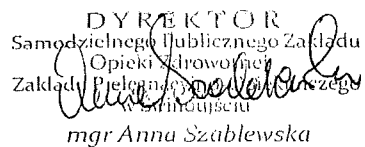 DYREKTOR
Samodzielnego Publicznego Zakładu
Opieki Zdrowotnej
Zakładu Pielęgnacyjno-Opiekuńczego
w Świnoujściu
mgr Anna Szablewska